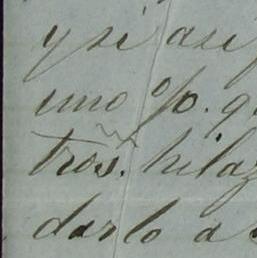 y si asi
uno %. q
tros. hilaz
darlo a